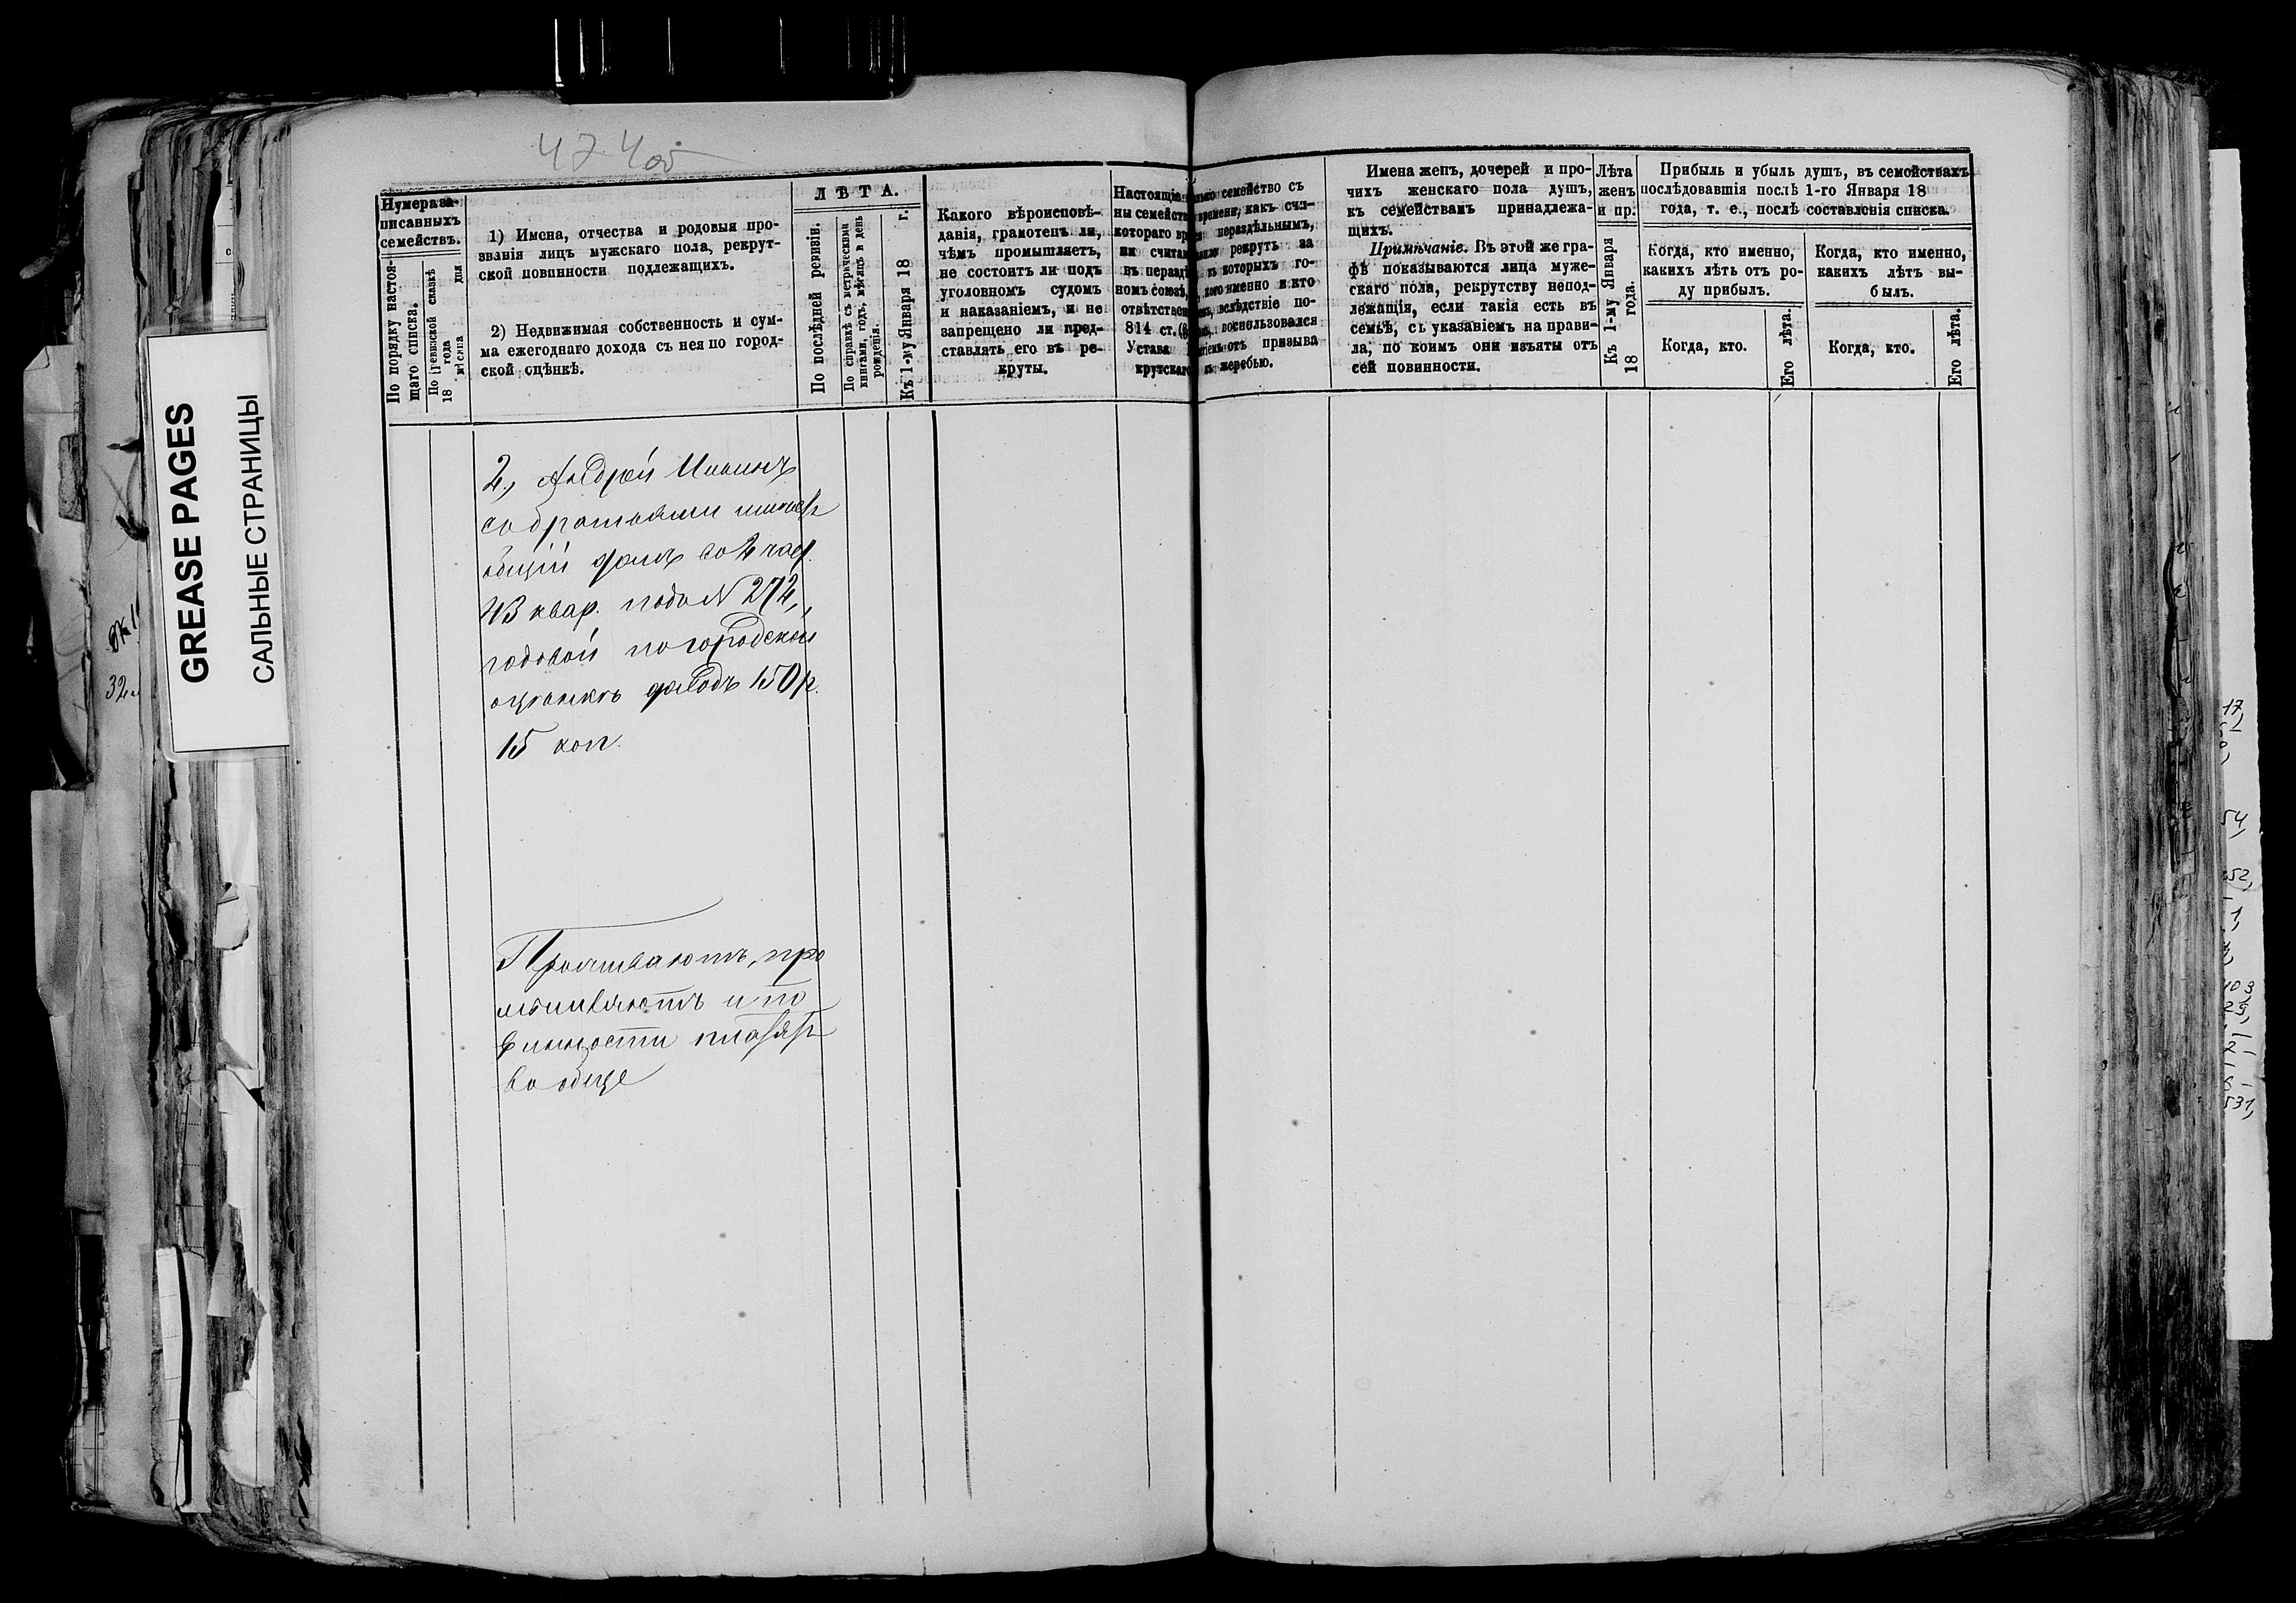 474 об
GREASE PAGES
САЛЬНЫЕ СТРАНИЦЫ
Нумера за-
писанныхъ
семействъ.
По порядку настоя-
щаго списка.
По ревизской сказкѣ
18 года
мѣсяца дня
1) Имена, отчества и родовыя про-
званія лицъ мужскаго пола, рекрут-
ской повинности подлежащихъ.
2) Недвижимая собственность и сум-
ма ежегоднаго дохода съ нея по город-
ской оцѣнкѣ.
ЛѢТА.
По послѣдней ревизіи.
По справкѣ съ метрическими
книгами, годъ, мѣсяцъ и день
рожденія.
Къ 1-му Января 18 г.
Какого вѣроисповѣ-
данія, грамотенъ ли,
чѣмъ промышляетъ,
не состоитъ ли подъ
уголовномъ судомъ
и наказаніемъ, и не
запрещено ли пред-
ставлять его въ ре-
круты.
Настоящіе
ны семейств
котораго вр
ли считат
въ неразд
номъ союзѣ,
отвѣтствен
814 ст. (
Устава
крутскаго
семейство съ
времени, какъ счи-
нераздѣльнымъ,
рекрутъ за
въ которыхъ го-
кого именно и кто
вслѣдствіе по-
воспользовался
отъ призыва
къ жеребью.
Имена женъ, дочерей и про-
чихъ женскаго пола душъ,
къ семействамъ принадлежа-
щихъ.
Примѣчаніе. Въ этой же гра-
фѣ показываются лица муже-
скаго пола, рекрутству непод-
лежащія, если такія есть въ
семьѣ, съ указаніемъ на прави-
ла, по коимъ они изъяты отъ
сей повинности.
Лѣта
женъ
и пр.
Къ 1-му Января
18 года.
Прибыль и убыль душъ, въ семействахъ
послѣдовавшія послѣ 1-го Января 18
года, т. е., послѣ составленія списка.
Когда, кто именно,
какихъ лѣтъ отъ ро-
ду прибылъ.
Когда, кто именно,
какихъ лѣтъ вы-
былъ.
Когда, кто.
Его лѣта.
Когда, кто.
Его лѣта.
2., Андрей
съ братьями имѣетъ
общій домъ во 2 част.
43 квар. подъ N 272,,
годовой по городской
оцѣнкѣ доходъ 150 р.
15 коп.
Проживаютъ, про
мышляютъ и по
винности платятъ
вообще
32
17,
54,
52,
1,
103
531,